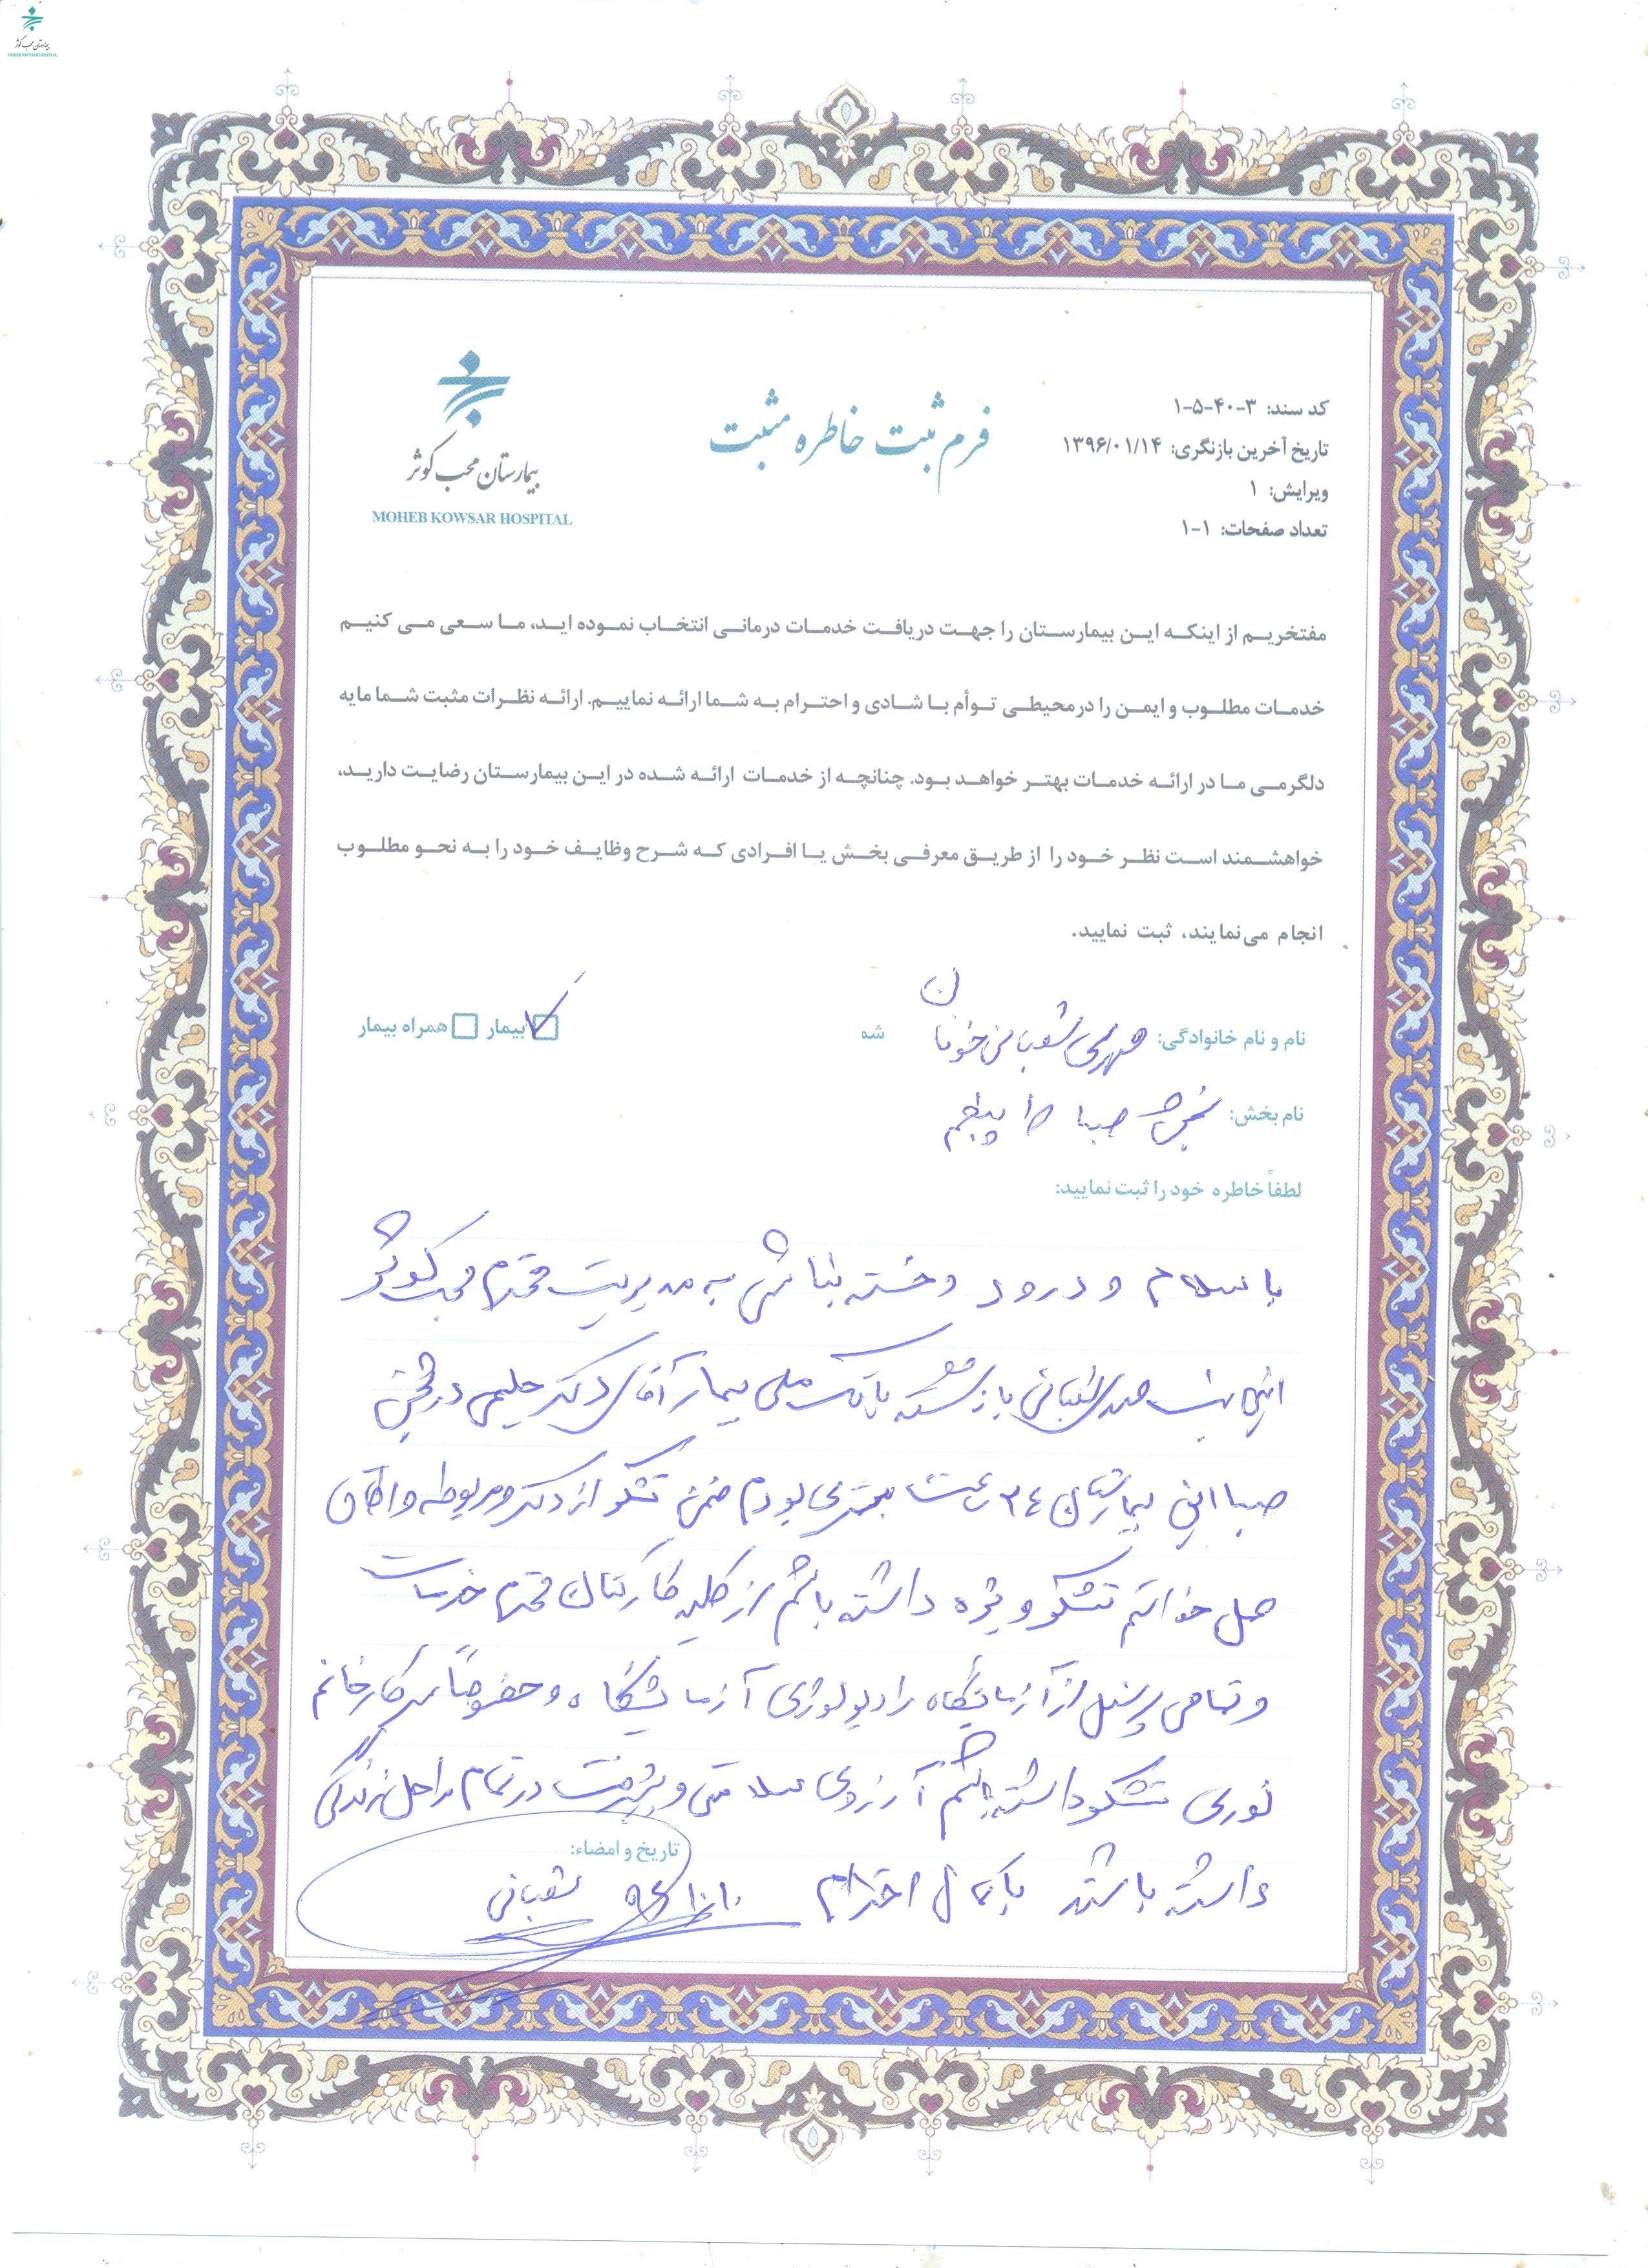 بیمارستان محب کوثر
MOHEB KOWSAR HOSPITAL
کد سند: ۳-۴۰-۵-۱
تاریخ آخرین بازنگری: ۱۳۹۶/۰۱/۱۴
ویرایش: ۱
تعداد صفحات: ۱-۱
فرم ثبت خاطره مثبت
بیمارستان محب کوثر
MOHEB KOWSAR HOSPITAL
مفتخریم از اینکه این بیمارستان را جهت دریافت خدمات درمانی انتخاب نموده اید، ما سعی می کنیم
خدمات مطلوب و ایمن را در محیطی توأم با شادی و احترام به شما ارائه نماییم. ارائه نظرات مثبت شما مایه
دلگرمی ما در ارائه خدمات بهتر خواهد بود. چنانچه از خدمات ارائه شده در این بیمارستان رضایت دارید،
خواهشمند است نظر خود را از طریق معرفی بخش یا افرادی که شرح وظایف خود را به نحو مطلوب
انجام می‌نمایند، ثبت نمایید.
نام و نام خانوادگی: شم بیمار همراه بیمار
نام بخش: صبا
لطفاً خاطره خود را ثبت نمایید:
با سلام و درود و خسته نباشی به مدیریت محترم محب کوثر
بازنشسته بانک ملی بیمار آقای دکتر حلیمی در بخش
صبا این بیمارستان ۳۴ ساعت بستری بودم ضمن تشکر از دکتر مربوطه و اطاق
عمل خواستم تشکر ویژه داشته باشم از کلیه کارکنان محترم خدمات
و تمامی پرسنل از آزمایشگاه رادیولوژی آزمایشگاه و خصوصاً سرکار خانم
نوری تشکر داشته باشم آرزوی سلامتی و پیشرفت در تمام مراحل زندگی
داشته باشند با کمال احترام
تاریخ و امضاء:
شعبانی